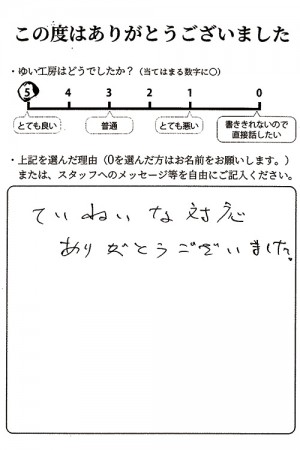 この度はありがとうございました
・ゆい工房はどうでしたか？（当てはまる数字に○）
5 4 3 2 1 0
とても良い 普通 とても悪い 書ききれないので直接話したい
・上記を選んだ理由（0を選んだ方はお名前をお願いします。）
または、スタッフへのメッセージ等を自由にご記入ください。
ていねいな対応
ありがとうございました。